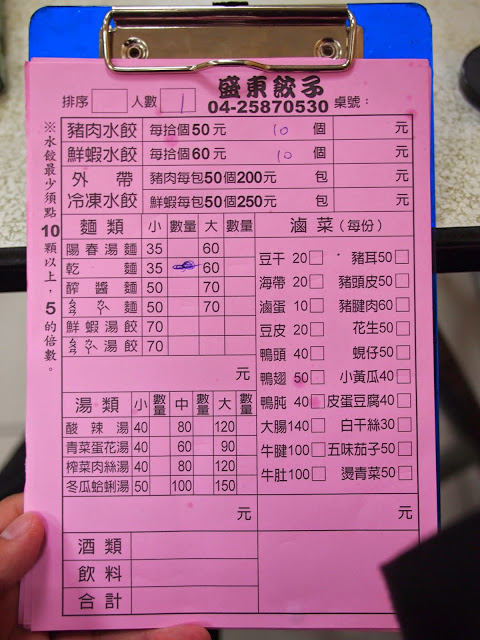 盛東餃子
排序 人數 1 04-25870530 桌號：
※水餃最少須點10顆以上，5的倍數。
豬肉水餃 每拾個50元 10 個 元
鮮蝦水餃 每拾個60元 10 個 元
外帶 豬肉每包50個200元 包 元
冷凍水餃 鮮蝦每包50個250元 包 元
麵類 小 數量 大 數量
陽春湯麵 35 60
乾麵 35 60
醡醬麵 50 70
ㄅㄚˋ麵 50 70
鮮蝦湯餃 70
ㄅㄚˋ湯餃 70
元
湯類 小 數量 中 數量 大 數量
酸辣湯 40 80 120
青菜蛋花湯 40 60 90
榨菜肉絲湯 40 80 120
冬瓜蛤蜊湯 50 100 150
元
酒類
飲料
合計
滷菜（每份）
豆干 20 豬耳50
海帶 20 豬頭皮50
滷蛋 10 豬腱肉60
豆皮 20 花生50
鴨頭 40 蜆仔50
鴨翅 50 小黃瓜40
鴨肫 40 皮蛋豆腐40
大腸140 白干絲30
牛腱100 五味茄子50
牛肚100 燙青菜50
元